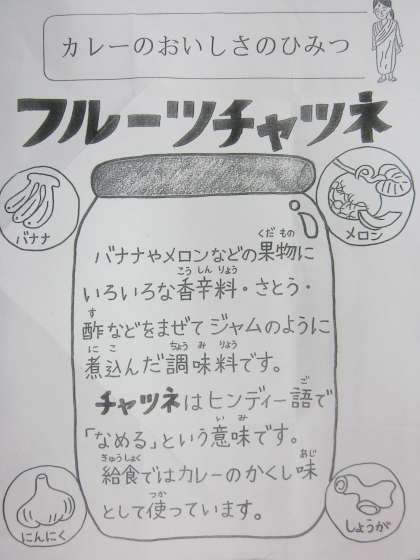 カレーのおいしさのひみつ
フルーツチャツネ
バナナ
メロン
くだもの
バナナやメロンなどの果物に
こうしんりょう
いろいろな香辛料・さとう・
す
酢などをまぜてジャムのように
にこ ちょうみりょう
煮込んだ調味料です。
ご
チャツネはヒンディー語で
いみ
「なめる」という意味です。
きゅうしょく あじ
給食ではカレーのかくし味
つか
として使っています。
にんにく
しょうが